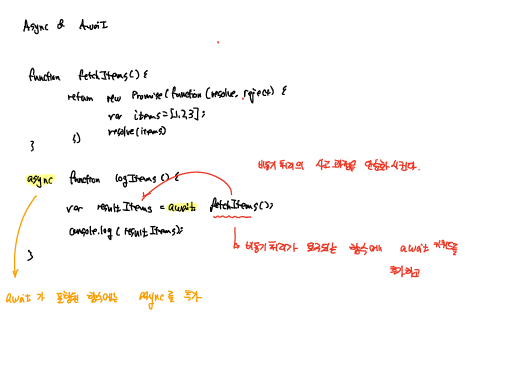 Async & Await
function fetchItems() {
return new Promise(function(resolve, reject) {
var items = [1,2,3];
resolve(items)
})
}
async function logItems() {
var resultItems = await fetchItems();
console.log(resultItems);
}
비동기 처리의 사고 과정을 단순화 시킨다.
비동기 처리가 필요되는 함수에 await 키워드를
추가하고
await가 포함된 함수에는 async를 추가